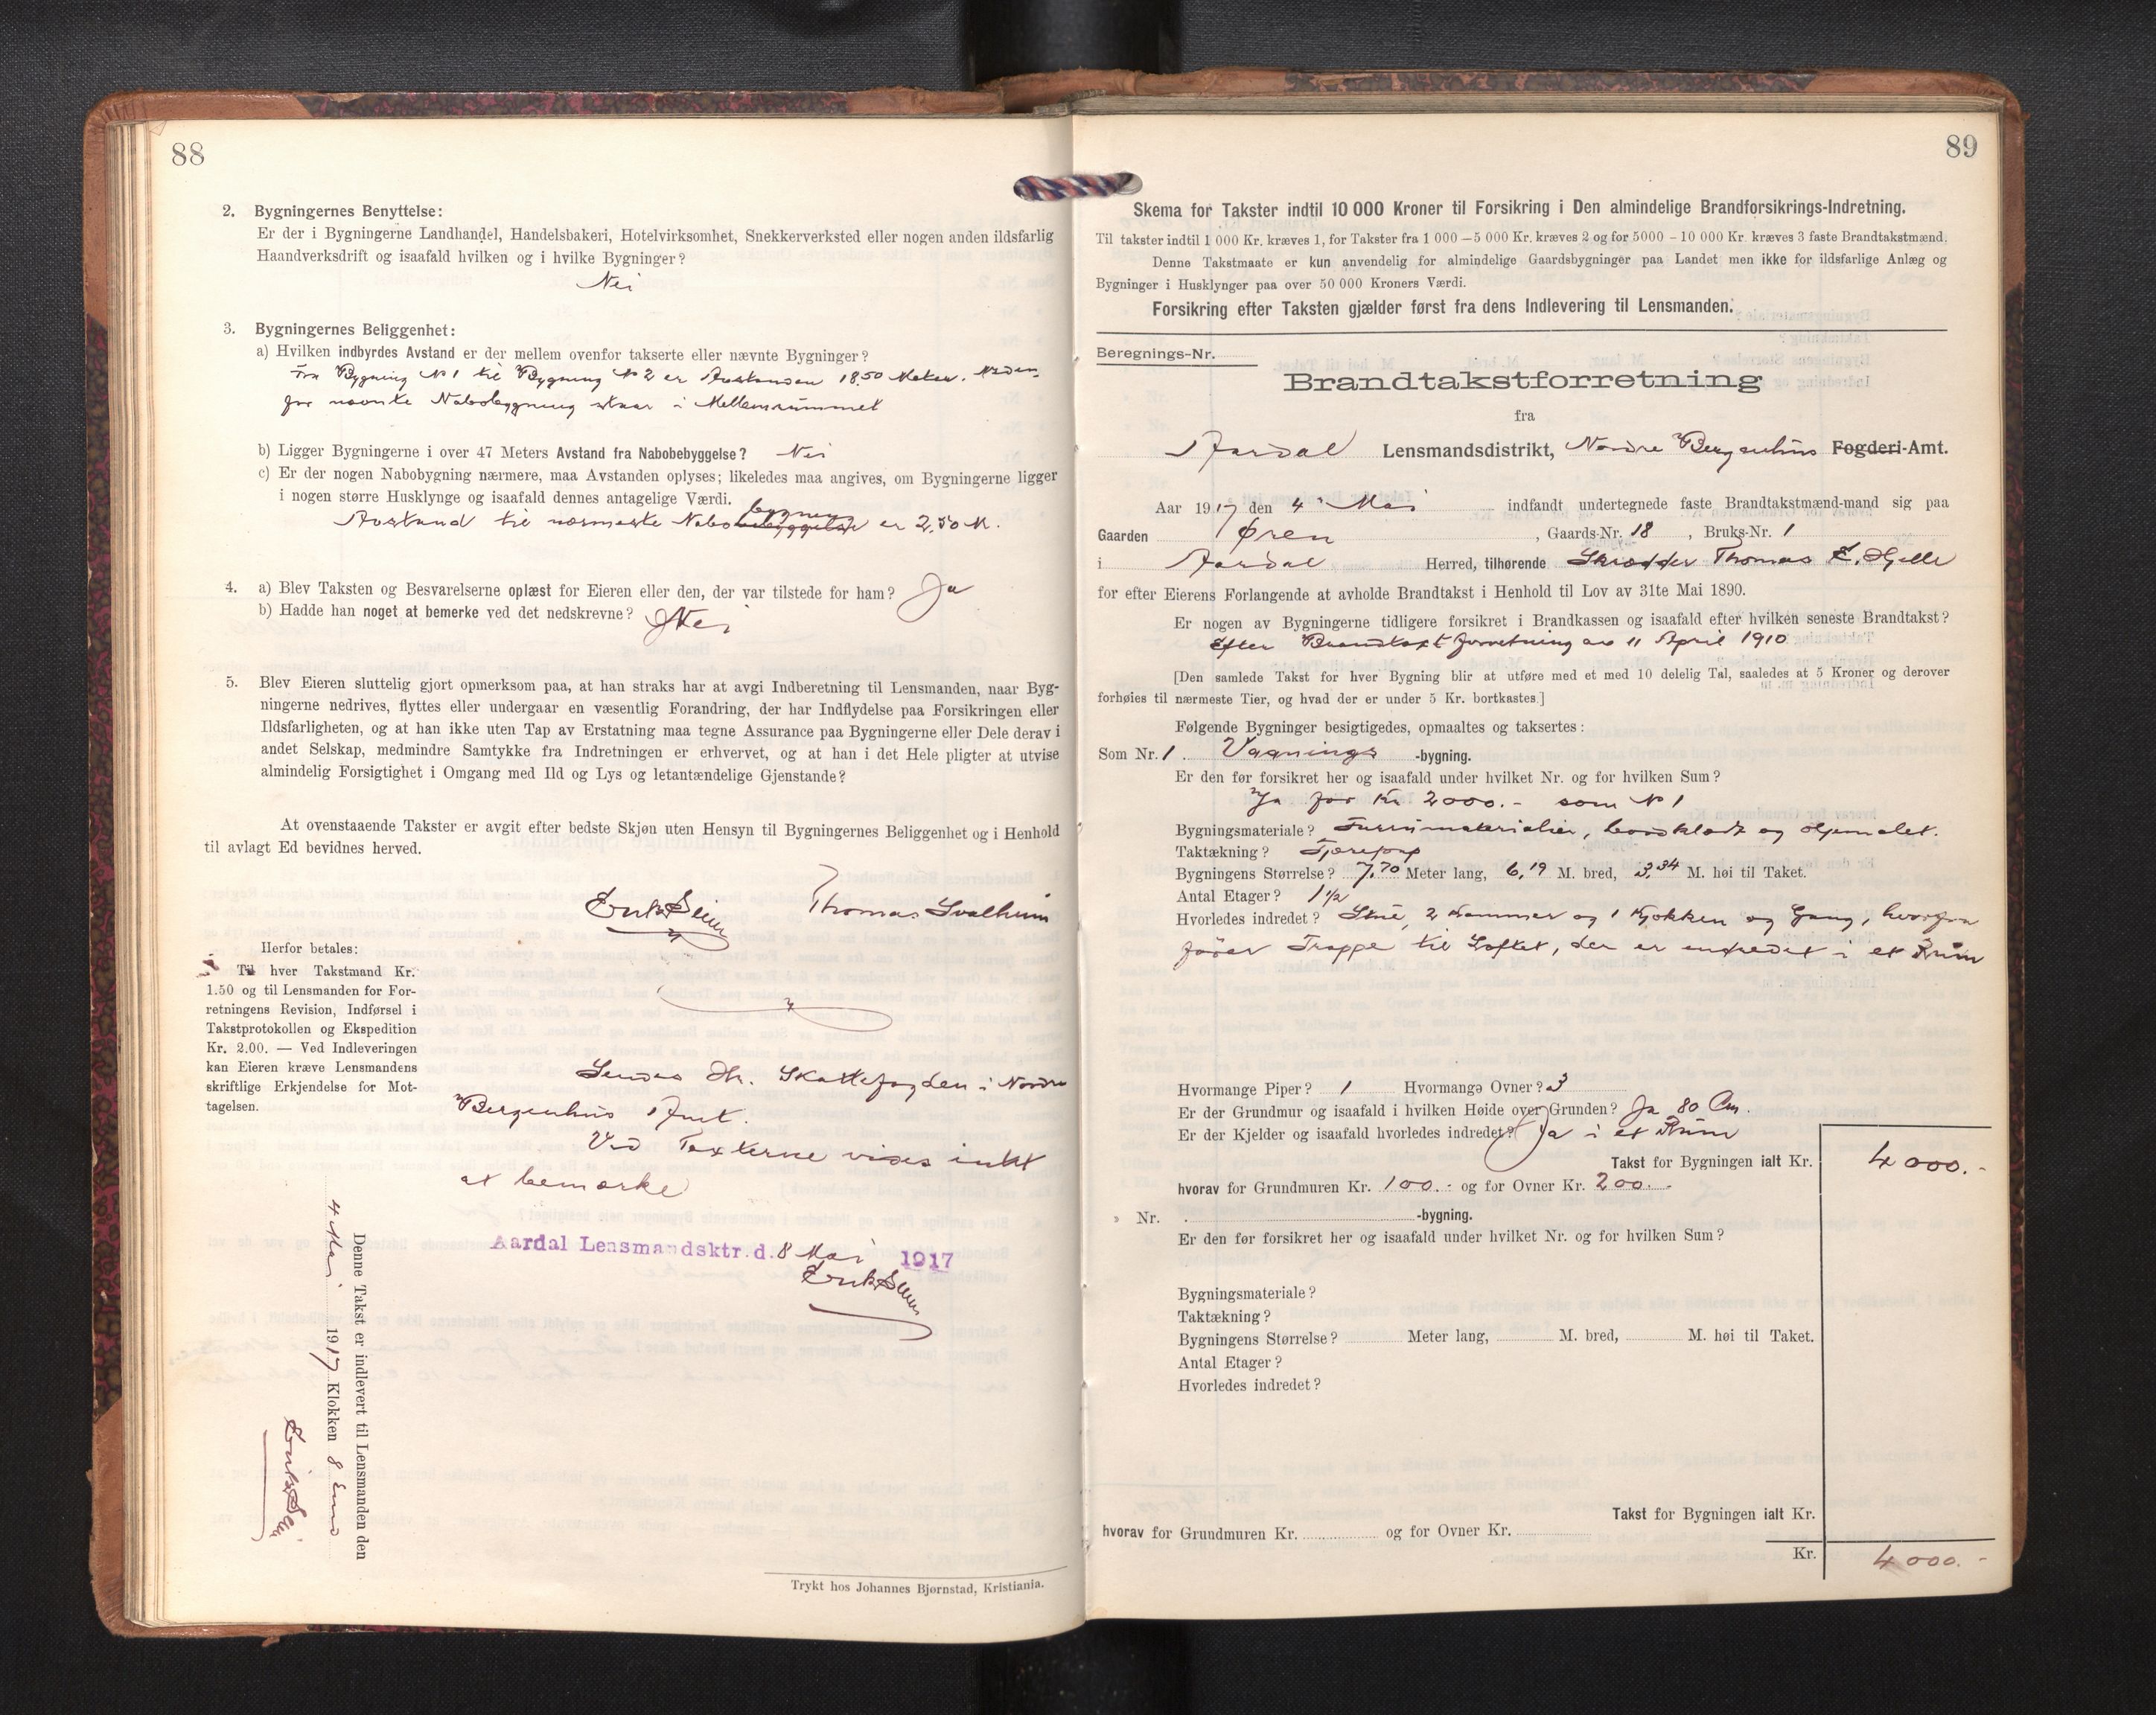 88
2. Bygningernes Benyttelse:
Er der i Bygningerne Landhandel, Handelsbakeri, Hotelvirksomhet, Snekkerverksted eller nogen anden ildsfarlig
Haandverksdrift og isaafald hvilken og i hvilke Bygninger?
Nei
3. Bygningernes Beliggenhet:
a) Hvilken indbyrdes Avstand er der mellem ovenfor takserte eller nævnte Bygninger?
Fra Bygning No 1 til Bygning No 2 er Avstanden 18.50 Meter. Neden-
for nævnte Nabobygning staar i Mellemrummet
b) Ligger Bygningerne i over 47 Meters Avstand fra Nabobebyggelse? Nei
c) Er der nogen Nabobygning nærmere, maa Avstanden oplyses; likeledes maa angives, om Bygningerne ligger
i nogen større Husklynge og isaafald dennes antagelige Værdi.
bygning
Avstand til nærmeste Nabobebyggelse er 2,50 M.
4. a) Blev Taksten og Besvarelserne oplæst for Eieren eller den, der var tilstede for ham? Ja
b) Hadde han noget at bemerke ved det nedskrevne? Nei
5. Blev Eieren sluttelig gjort opmerksom paa, at han straks har at avgi Indberetning til Lensmanden, naar Byg-
ningerne nedrives, flyttes eller undergaar en væsentlig Forandring, der har Indflydelse paa Forsikringen eller
Ildsfarligheten, og at han ikke uten Tap av Erstatning maa tegne Assurance paa Bygningerne eller Dele derav i
andet Selskap, medmindre Samtykke fra Indretningen er erhvervet, og at han i det Hele pligter at utvise
almindelig Forsigtighet i Omgang med Ild og Lys og letantændelige Gjenstande?
At ovenstaaende Takster er avgit efter bedste Skjøn uten Hensyn til Bygningernes Beliggenhet og i Henhold
til avlagt Ed bevidnes herved.
Erik Slinn Thomas Svalheim
Herfor betales:
Til hver Takstmand Kr.
1.50 og til Lensmanden for For-
retningens Revision, Indførsel i
Takstprotokollen og Ekspedition
Kr. 2.00. — Ved Indleveringen
kan Eieren kræve Lensmandens
skriftlige Erkjendelse for Mot-
tagelsen.
Sendes Hr. Skattefogden i Nordre
Bergenhus Amt.
Ved Taxterne vides intet
at bemærke
Aardal Lensmandsktr. d. 8 Mai 1917
Denne Takst er indlevert til Lensmanden den
4 Mai 1917 Klokken 8 Emd
Trykt hos Johannes Bjørnstad, Kristiania.
89
Skema for Takster indtil 10 000 Kroner til Forsikring i Den almindelige Brandforsikrings-Indretning.
Til takster indtil 1 000 Kr. kræves 1, for Takster fra 1 000 – 5 000 Kr. kræves 2 og for 5000 – 10 000 Kr. kræves 3 faste Brandtakstmænd.
Denne Takstmaate er kun anvendelig for almindelige Gaardsbygninger paa Landet men ikke for ildsfarlige Anlæg og
Bygninger i Husklynger paa over 50 000 Kroners Værdi.
Forsikring efter Taksten gjælder først fra dens Indlevering til Lensmanden.
Beregnings-Nr.
Brandtakstforretning
fra
Aardal Lensmandsdistrikt, Nordre Bergenhus Fogderi-Amt.
Aar 1917 den 4 Mai indfandt undertegnede faste Brandtakstmænd-mand sig paa
Gaarden Øren, Gaards-Nr. 18, Bruks-Nr. 1
i Aardal Herred, tilhørende Skrædder Thomas E. Hjelle
for efter Eierens Forlangende at avholde Brandtakst i Henhold til Lov av 31te Mai 1890.
Er nogen av Bygningerne tidligere forsikret i Brandkassen og isaafald efter hvilken seneste Brandtakst?
Efter Brandtaxtforretning av 11 April 1910
[Den samlede Takst for hver Bygning blir at utføre med et med 10 delelig Tal, saaledes at 5 Kroner og derover
forhøies til nærmeste Tier, og hvad der er under 5 Kr. bortkastes.]
Følgende Bygninger besigtigedes, opmaaltes og taksertes:
Som Nr. 1. Vaanings-bygning.
Er den før forsikret her og isaafald under hvilket Nr. og for hvilken Sum?
Ja for Kr. 2000.- som No 1
Bygningsmateriale? Furrumaterialier, bordklædt og oljemalet.
Taktækning? Tjærepap
Bygningens Størrelse? 7,70 Meter lang, 6,19 M. bred, 3,34 M. høi til Taket.
Antal Etager? 1½
Hvorledes indredet? Stue, 2 Kammer og 1 Kjøkken og Gang, hvorfra
fører Trappe til Loftet, der er indredet i et Rum
Hvormange Piper? 1 Hvormange Ovner? 3
Er der Grundmur og isaafald i hvilken Høide over Grunden? Ja 80 Cm.
Er der Kjelder og isaafald hvorledes indredet? Ja i et Rum
Takst for Bygningen ialt Kr. 4000.-
hvorav for Grundmuren Kr. 100.- og for Ovner Kr. 200.-
» Nr. . -bygning.
Er den før forsikret her og isaafald under hvilket Nr. og for hvilken Sum?
Bygningsmateriale?
Taktækning?
Bygningens Størrelse? Meter lang, M. bred, M. høi til Taket.
Antal Etager?
Hvorledes indredet?
Takst for Bygningen ialt Kr.
hvorav for Grundmuren Kr. og for Ovner Kr.
Kr. 4000.-